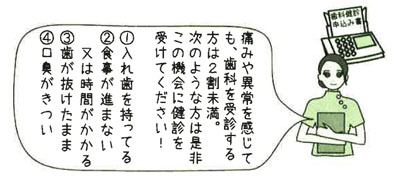 歯科健診
申込み書
痛みや異常を感じて
も、歯科を受診する
方は２割未満。
次のような方は是非
この機会に健診を
受けてください！
①入れ歯を持ってる
②食事が進まない
又は時間がかかる
③歯が抜けたまま
④口臭がきつい